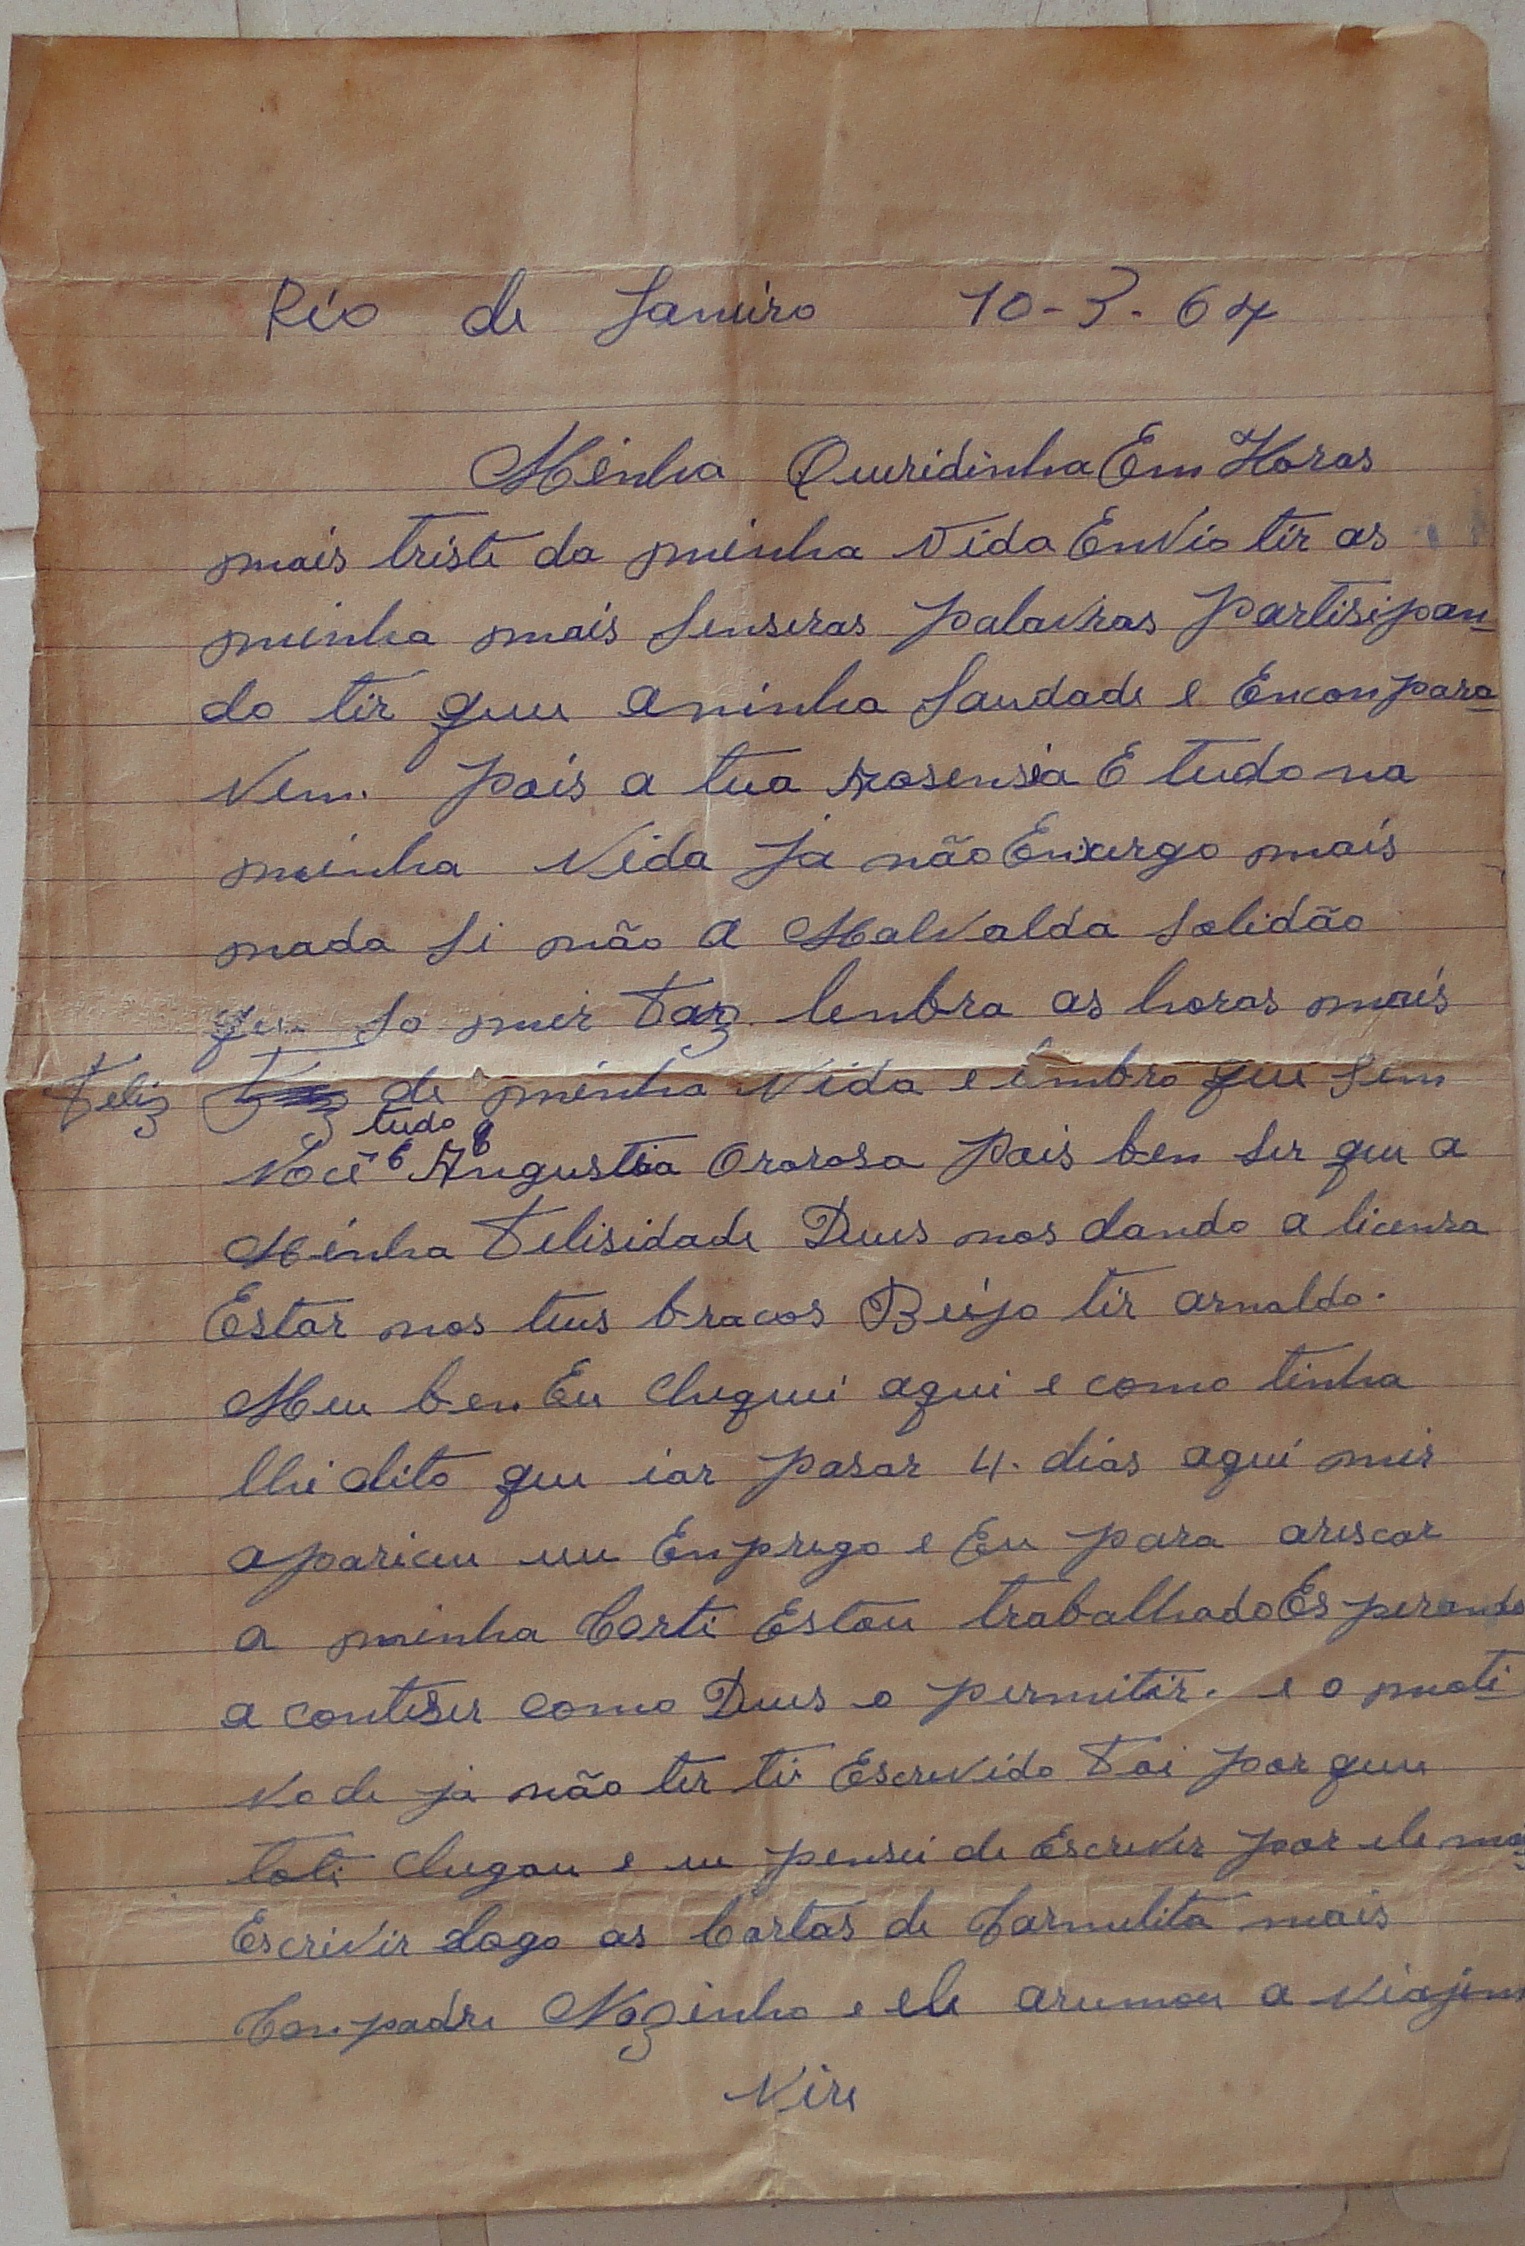 Rio de Janeiro 10-3-64
Minha Queridinha Em Horas
mais triste da minha vida Envio tir as
minha mais senseras palavras partisipan-
do tir que aminha saudade e Enconpara
vem. pois a tua Aosensia E tudo na
minha vida ja não Enxergo mais
nada si não a Malvalda solidão
que so mir Faz lenbra as horas mais
Feliz de minha vida e lmbro que sem
tudo
você é Angustia Ororosa pois ben ser que a
Minha Felisidade Deus nos dando a licensa
Estar nos teus bracos Beijo tir arnaldo.
Meu ben Eu cheguei aqui e como tinha
lhi dito que iar pasar 4. dias aqui mir
apariceu un Enprego e Eu para ariscar
a minha Corti Estou trabalhado Esperando
a conteser como Deus o permitir. e o moti
vo de ja não ter ti Escrevido Foi por que
toti chegou e eu pensei de Escrever por ele mas
Escrivir Logo as Cartas de Carmelita mais
Conpadre Nozinho e ele arumou a viajem
Vire